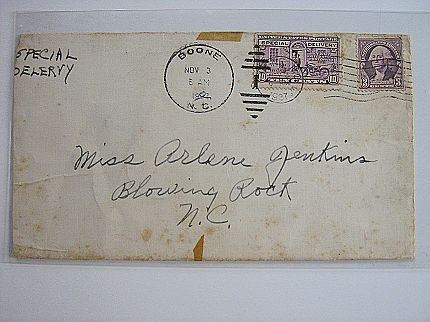 SPECIAL
DELERVY
BOONE
NOV 3
N. C.
UNITED STATES POSTAGE
SPECIAL DELIVERY
10 10
3 3
Miss Arlene Jenkins
Blowing Rock
N.C.